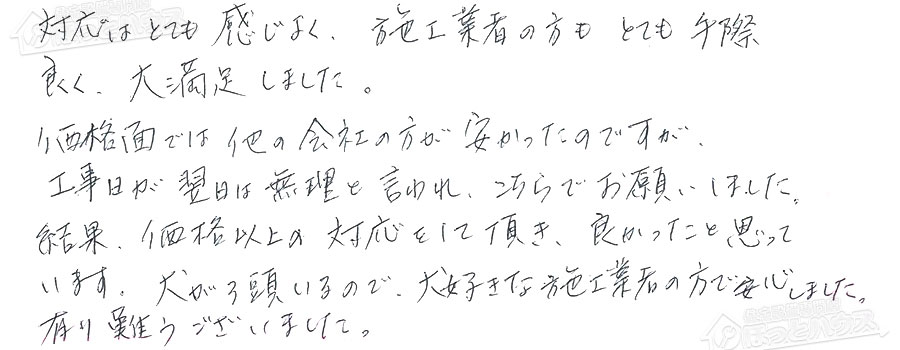 対応はとても感じよく、施工業者の方もとても手際
良く、大満足しました。
価格面では他の会社の方が安かったのですが、
工事日が翌日は無理と言われ、こちらでお願いしました。
結果、価格以上の対応をして頂き、良かったと思って
います。犬が3頭いるので、犬好きな施工業者の方で安心しました。
有り難うございました。